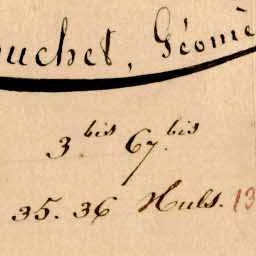 ouchet, Géomè
3.bis 67.bis
35. 36 Nuls. 13